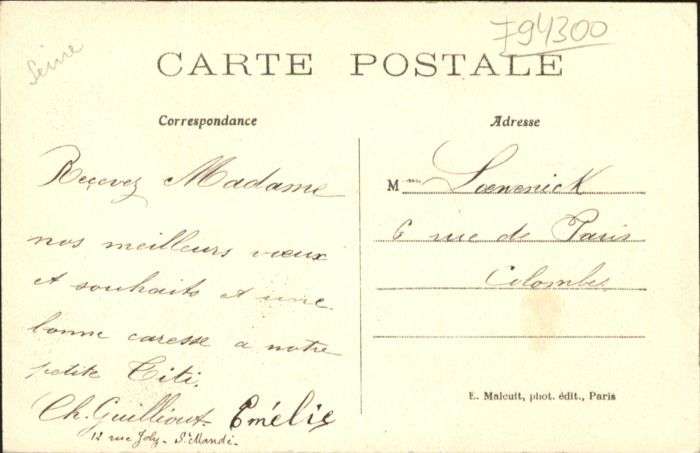 Seine
794300
CARTE POSTALE
Correspondance
Recevez Madame
nos meilleurs vœux
et souhaits et une
bonne caresse a notre
petite Titi.
Ch. Guilliout - Emélie
12 rue Joly - St Mandé -
Adresse
Mme Lœnenick
6 rue de Paris
Colombes
E. Malcuit, phot. édit., Paris